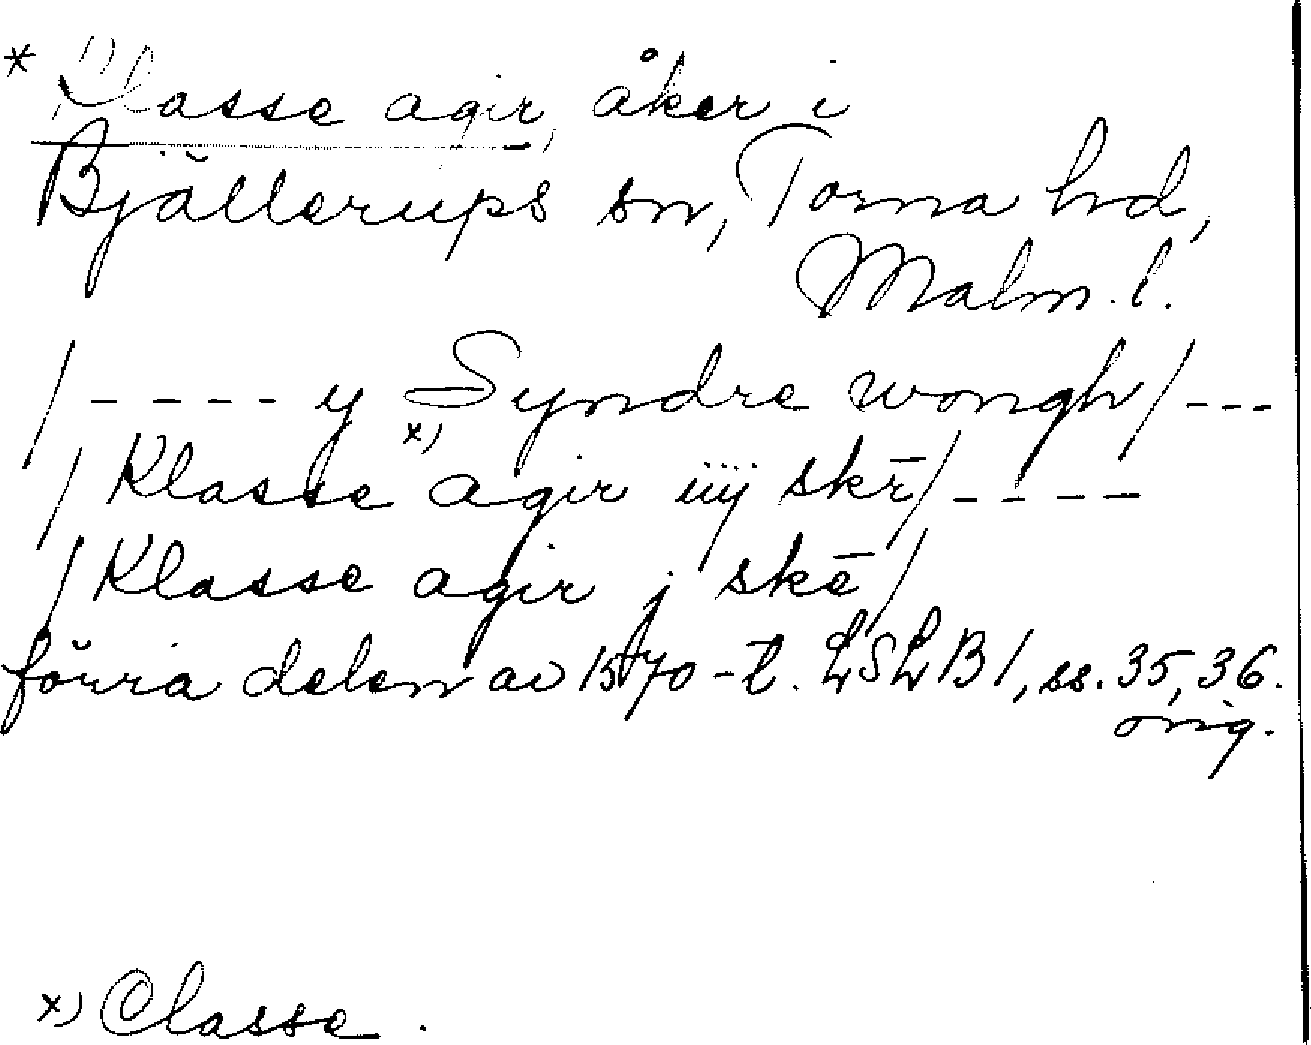 * Klasse agir, åker i
Bjällerups sn, Torna hrd,
Malm. l.
/---- y Syndre wongh/---
/Klasse x) agir iiij skē/----
/Klasse agir j skē/
förra delen av 1570-t. LSLB1, ss. 35, 36.
orig.
x) Classe.